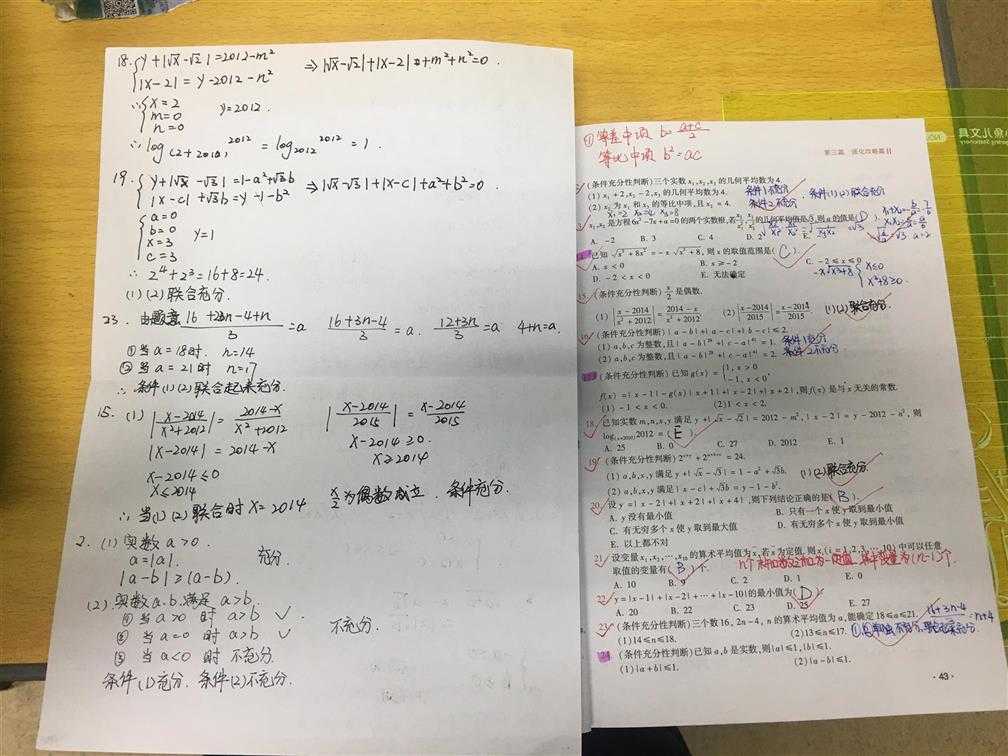 18. { y+|√x-√2|=2012-m²
|x-2|=y-2012-n² ⇒|√x-√2|+|x-2|+m²+n²=0.
∴{ x=2
m=0 y=2012.
n=0
∴log(2+2010)^2012 = log2012^2012 = 1.
19. { y+|√x-√3|=1-a²+√3b
|x-c|+√3b=y-1-b² ⇒|√x-√3|+|x-c|+a²+b²=0.
{ a=0
b=0
x=3 y=1
c=3
∴ 2⁴+2³=16+8=24.
(1)(2)联合充分.
23. 由题意 (16+2n-4+n)/3=a (16+3n-4)/3=a. (12+3n)/3=a 4+n=a.
①当a=18时. n=14
②当a=21时 n=17
∴条件(1)(2)联合起来充分.
15. (1) |(x-2014)/(x²+2012)|=(2014-x)/(x²+2012) |(x-2014)/2015|=(x-2014)/2015
|x-2014|=2014-x x-2014≥0.
x≥2014
x-2014≤0
x≤2014
∴当(1)(2)联合时x=2014 x/2为偶数成立. 条件充分.
2. (1)实数a>0.
a=|a|. 充分.
|a-b|≥(a-b).
(2)实数a.b.满足 a>b.
①当a>0 时 a>b ✓
②当a=0 时 a>b ✓ 不充分.
③当a<0 时 不充分.
条件(1)充分.条件(2)不充分.
①等差中项 b=(a+c)/2
等比中项 b²=ac
第三篇 强化攻略篇 II
(条件充分性判断)三个实数x₁,x₂,x₃的几何平均数为4. 条件1充分. 条件(1)(2)联合充分
(1)x₁+2,x₂-2,x₃的几何平均数为4. 条件2不充分.
(2)x₂为x₁和x₃的等比中项,且x₂=4.
x₁=2 x₂=4 x₃=8
x₁,x₂是方程6x²-7x+a=0的两个实数根,若1/x₁,1/x₂的几何平均值是√3,则a的值是(D).
A. -2 B. 3 C. 4 D. 2 E.
已知√(x³+8x²)=-x√(x²+8),则x的取值范围是(C)
A. x<0 B. x≥-2 C. -2≤x≤0
D. -2<x<0 E. 无法确定
15. (条件充分性判断) x/2是偶数.
(1)|(x-2014)/(x²+2012)|=(2014-x)/(x²+2012) (2)|(x-2014)/2015|=(x-2014)/2015 (1)(2)联合充分.
16. (条件充分性判断)|a-b|+|a-c|+|b-c|≤2.
(1)a,b,c为整数,且|a-b|²⁰+|c-a|⁴¹=1. 条件1充分
(2)a,b,c为整数,且|a-b|²⁰+|c-a|⁴¹=2. 条件2不充分
(条件充分性判断)已知g(x)={ 1,x>0
-1,x<0,
f(x)=|x-1|-g(x)|x+1|+|x-2|+|x+2|,则f(x)是与x无关的常数.
(1)-1<x<0. (2)1<x<2.
18. 已知实数m,n,x,y满足y+|√x-√2|=2012-m²,|x-2|=y-2012-n²,则
log(x+2010)2012=(E).
A. 25 B. 0 C. 27 D. 2012 E. 1
19. (条件充分性判断)2^(y+x)+2^(x+b)=24.
(1)a,b,x,y满足y+|√x-√3|=1-a²+√3b. (1)(2)联合充分
(2)a,b,x,y满足|x-c|+√3b=y-1-b².
20. 设y=|x-2|+|x+2|+|x+4|,则下列结论正确的是(B).
A. y没有最小值 B. 只有一个x使y取到最小值
C. 有无穷多个x使y取到最大值 D. 有无穷多个x使y取到最小值
E. 以上都不对
21. 设变量x₁,x₂,…,x₁₀的算术平均值为x̄,若x̄为定值,则xᵢ(i=1,2,…,10)中可以任意
取值的变量有(B)个.
A. 10 B. 9 C. 2 D. 1 E. 0
22. y=|x-1|+|x-2|+…+|x-10|的最小值为(D).
A. 20 B. 22 C. 23 D. 25 E. 27
23. (条件充分性判断)三个数16,2n-4,n的算术平均值为a,能确定18≤a≤21. (16+3n-4)/3=n+4
(1)14≤n≤18. (2)13≤n≤17.
24. (条件充分性判断)已知a,b是实数,则|a|≤1,|b|≤1.
(1)|a+b|≤1. (2)|a-b|≤1.
·43·